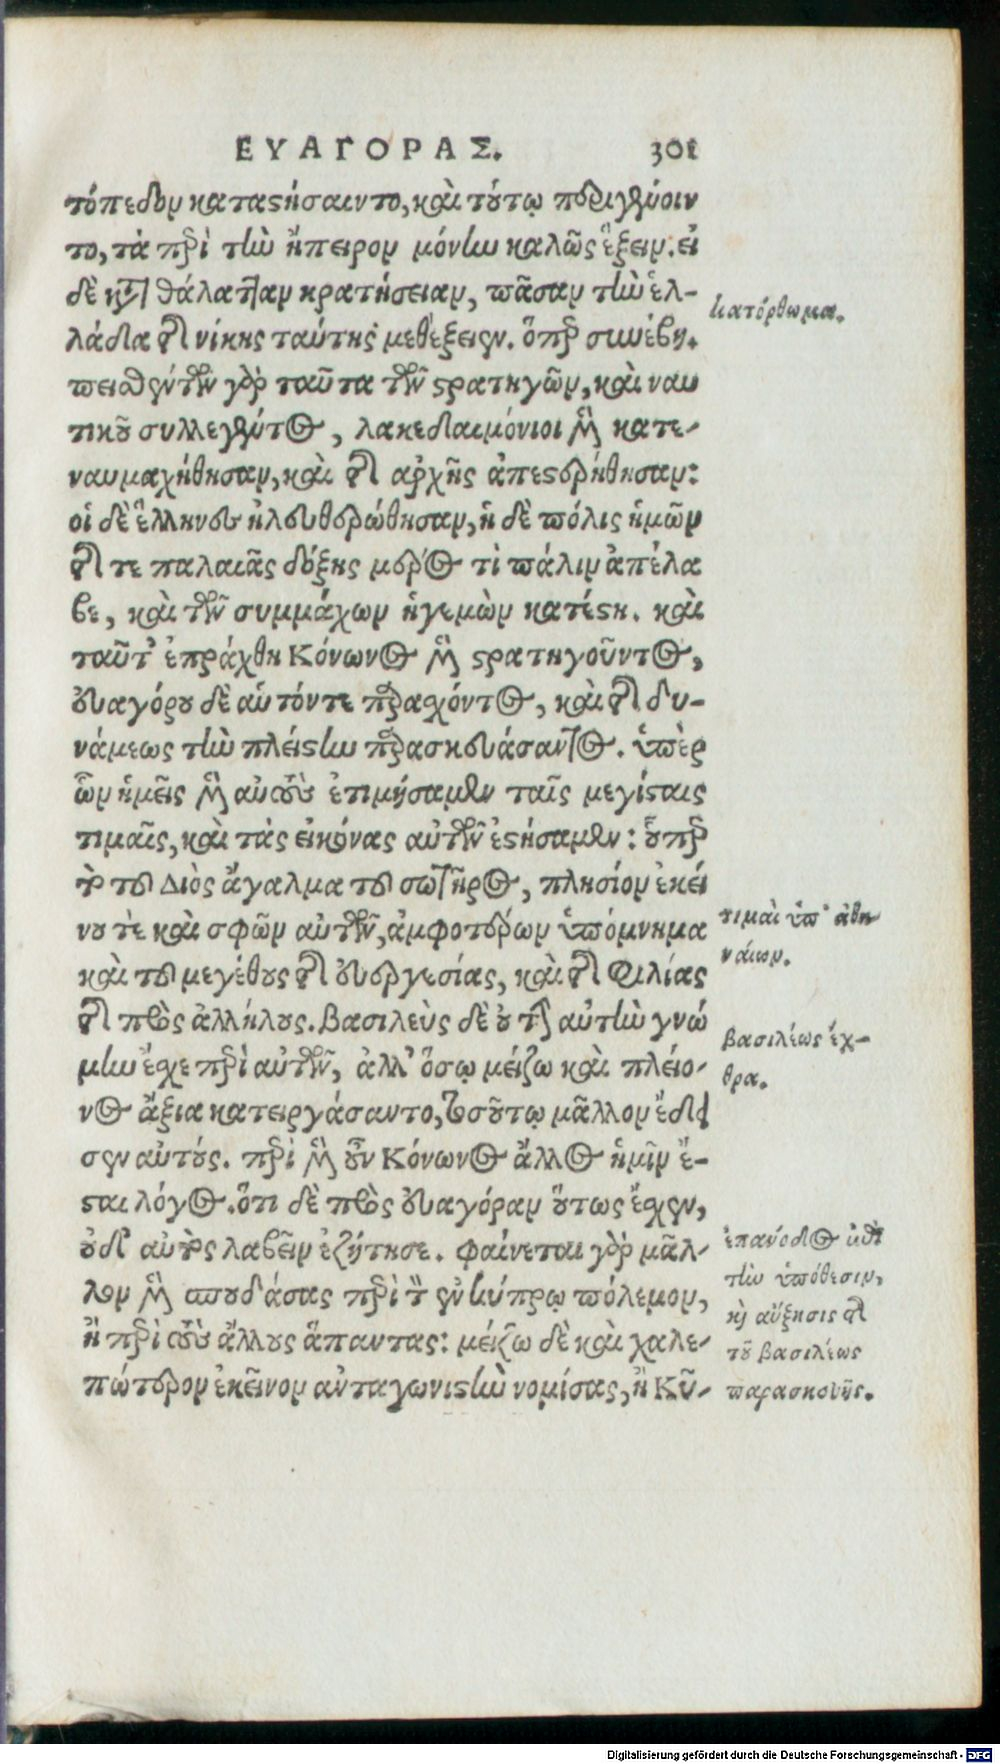 ΕΥΑΓΟΡΑΣ. 301
τόπεδον καταστήσαιντο, καὶ τούτῳ περιγένοιν
το, τὰ περὶ τὴν ἤπειρον μόνην καλῶς ἕξειν. εἰ
δὲ κατὰ θάλατταν κρατήσειαν, πᾶσαν τὴν ἑλ-
λάδα τῆς νίκης ταύτης μεθέξειν. ὅπερ συνέβη.
πεισθέντων γὰρ ταῦτα τῶν στρατηγῶν, καὶ ναυ
τικοῦ συλλεγέντος, λακεδαιμόνιοι μὲν κατε-
ναυμαχήθησαν, καὶ τῆς ἀρχῆς ἀπεστερήθησαν:
οἱ δὲ ἕλληνες ἠλευθερώθησαν, ἡ δὲ πόλις ἡμῶν
τῆς τε παλαιᾶς δόξης μέρος τὶ πάλιν ἀπέλα
βε, καὶ τῶν συμμάχων ἡγεμὼν κατέστη. καὶ
ταῦτ' ἐπράχθη Κόνωνος μὲν στρατηγοῦντος,
εὐαγόρου δὲ αὑτόν τε παρασχόντος, καὶ τῆς δυ-
νάμεως τὴν πλείστην παρασκευάσαντος. ὑπὲρ
ὧν ἡμεῖς μὲν αὐτοὺς ἐτιμήσαμεν ταῖς μεγίσταις
τιμαῖς, καὶ τὰς εἰκόνας αὐτῶν ἐστήσαμεν: οὗπερ
τὸ τοῦ Διὸς ἄγαλμα τοῦ σωτῆρος, πλησίον ἐκεί
νου τὲ καὶ σφῶν αὐτῶν, ἀμφοτέρων ὑπόμνημα
καὶ τοῦ μεγέθους τῆς εὐεργεσίας, καὶ τῆς φιλίας
τῆς πρὸς ἀλλήλους. βασιλεὺς δὲ οὐ τὴν αὐτὴν γνώ
μην ἔσχε περὶ αὐτῶν, ἀλλ' ὅσῳ μείζω καὶ πλείο-
νος ἄξια κατειργάσαντο, τοσούτῳ μᾶλλον ἔδει
σεν αὐτούς. περὶ μὲν οὖν Κόνωνος ἄλλος ἡμῖν ἔ-
σται λόγος. ὅτι δὲ πρὸς εὐαγόραν οὕτως ἔσχεν,
οὐδ' αὐτὸς λαθεῖν ἐζήτησε. φαίνεται γὰρ μᾶλ-
λον μὲν σπουδάσας περὶ τὸν ἐν κύπρῳ πόλεμον,
ἢ περὶ τοὺς ἄλλους ἅπαντας: μείζω δὲ καὶ χαλε-
πώτερον ἐκεῖνον ἀνταγωνιστὴν νομίσας, ἢ Κῦ-
κατόρθωμα.
τιμαὶ ὑπ' ἀθη
ναίων.
βασιλέως ἔχ-
θρα.
ἐπανόδος κατὰ
τὴν ὑπόθεσιν,
καὶ αὔξησις τῆς
τοῦ βασιλέως
παρασκευῆς.
Digitalisierung gefördert durch die Deutsche Forschungsgemeinschaft - DFG